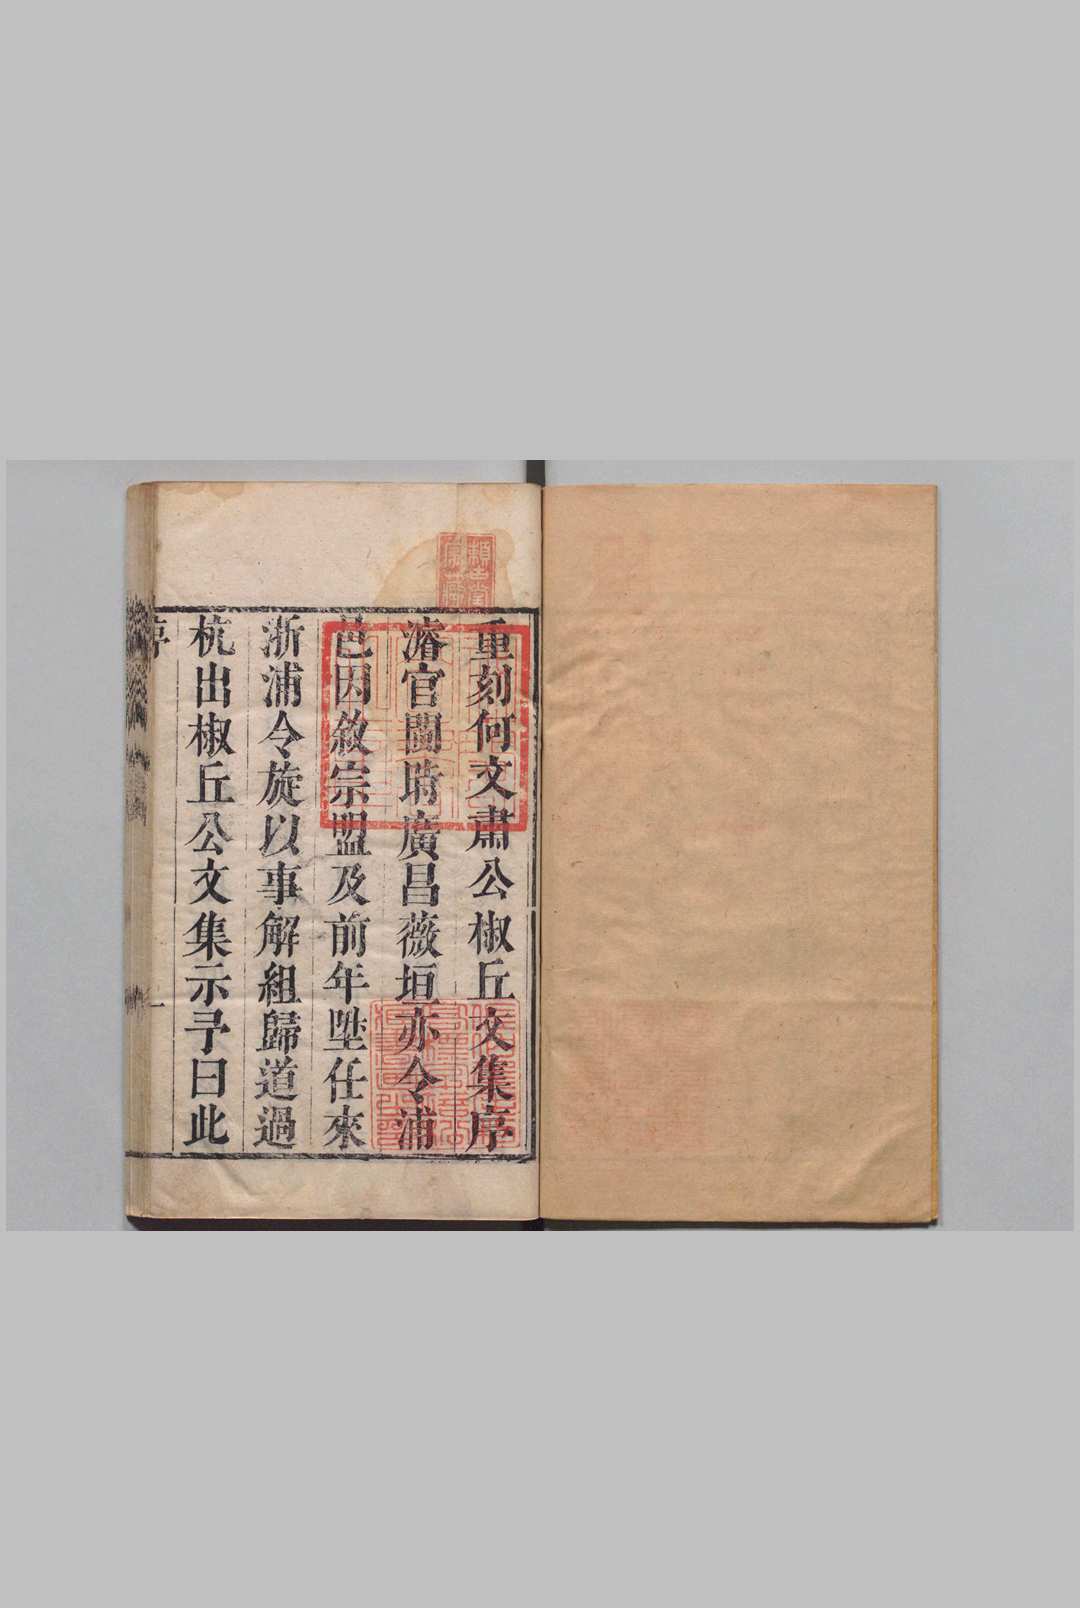 重刻何文肅公椒丘文集序
濬官閩時廣昌薇垣亦令浦
邑因敘宗盟及前年陞任來
浙浦令旋以事解組歸道過
杭出椒丘公文集示予曰此
序
一
賴古堂
家藏